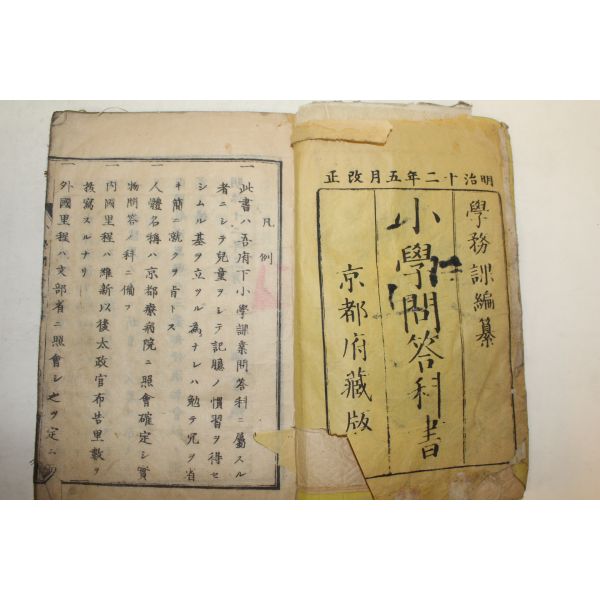 明治十二年五月改正
學務課編纂
小學問答科書
京都府藏版
凡例
一此書ハ吾府下小學課業問答科ニ屬スル
者ニシテ兒童ヲシテ記臆ノ慣習ヲ得セ
シムル基ヲ立ツル為ナレハ勉テ冗ヲ省
キ簡ニ就クヲ旨トス
一人體名稱ハ京都療病院ニ照會確定シ實
物問答
科ニ備フ
一內國里程ハ維新以後太政官布告里數ヲ
抜寫スルナリ
一外國里程ハ文部省ニ照會シ之ヲ定ム